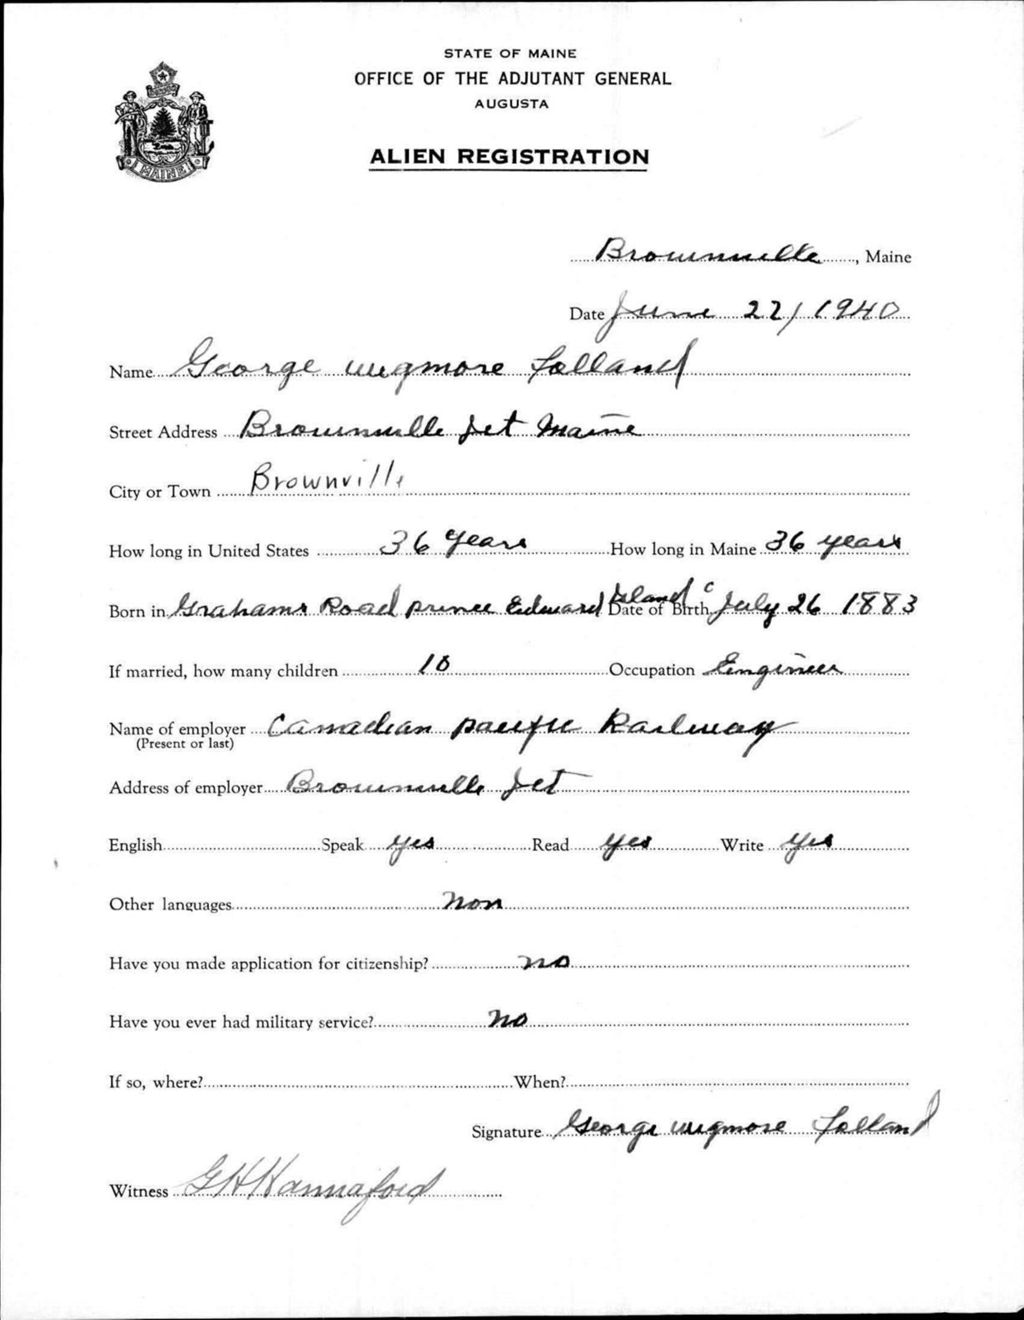 STATE OF MAINE
OFFICE OF THE ADJUTANT GENERAL
AUGUSTA
MAINE
ALIEN REGISTRATION
Brownville, Maine
Date June 27/1940
Name George Wigmore Folland
Street Address Brownville Jct Maine
City or Town Brownville
How long in United States 36 years How long in Maine 36 years
Born in Grahams Road Prince Edward Island C Date of Birth July 26 1883
If married, how many children 10 Occupation Engineer
Name of employer Canadian Pacific Railway
(Present or last)
Address of employer Brownville Jct
English Speak yes Read yes Write yes
Other languages Non
Have you made application for citizenship? no
Have you ever had military service? no
If so, where? When?
Signature George Wigmore Folland
Witness G H Hannaford